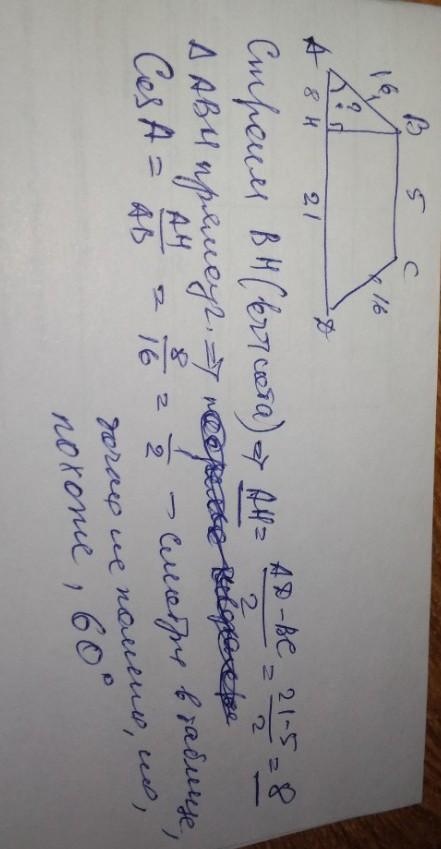 B 5 C
16 16
? 
A 8 H 21 D
Строим BH (высота) ⇒ AH = AD-BC/2 = 21-5/2 = 8
Δ ABH прямоуг. ⇒
Cos A = AH/AB = 8/16 = 1/2 → смотрю в таблице,
точно не помню, но,
похоже, 60°